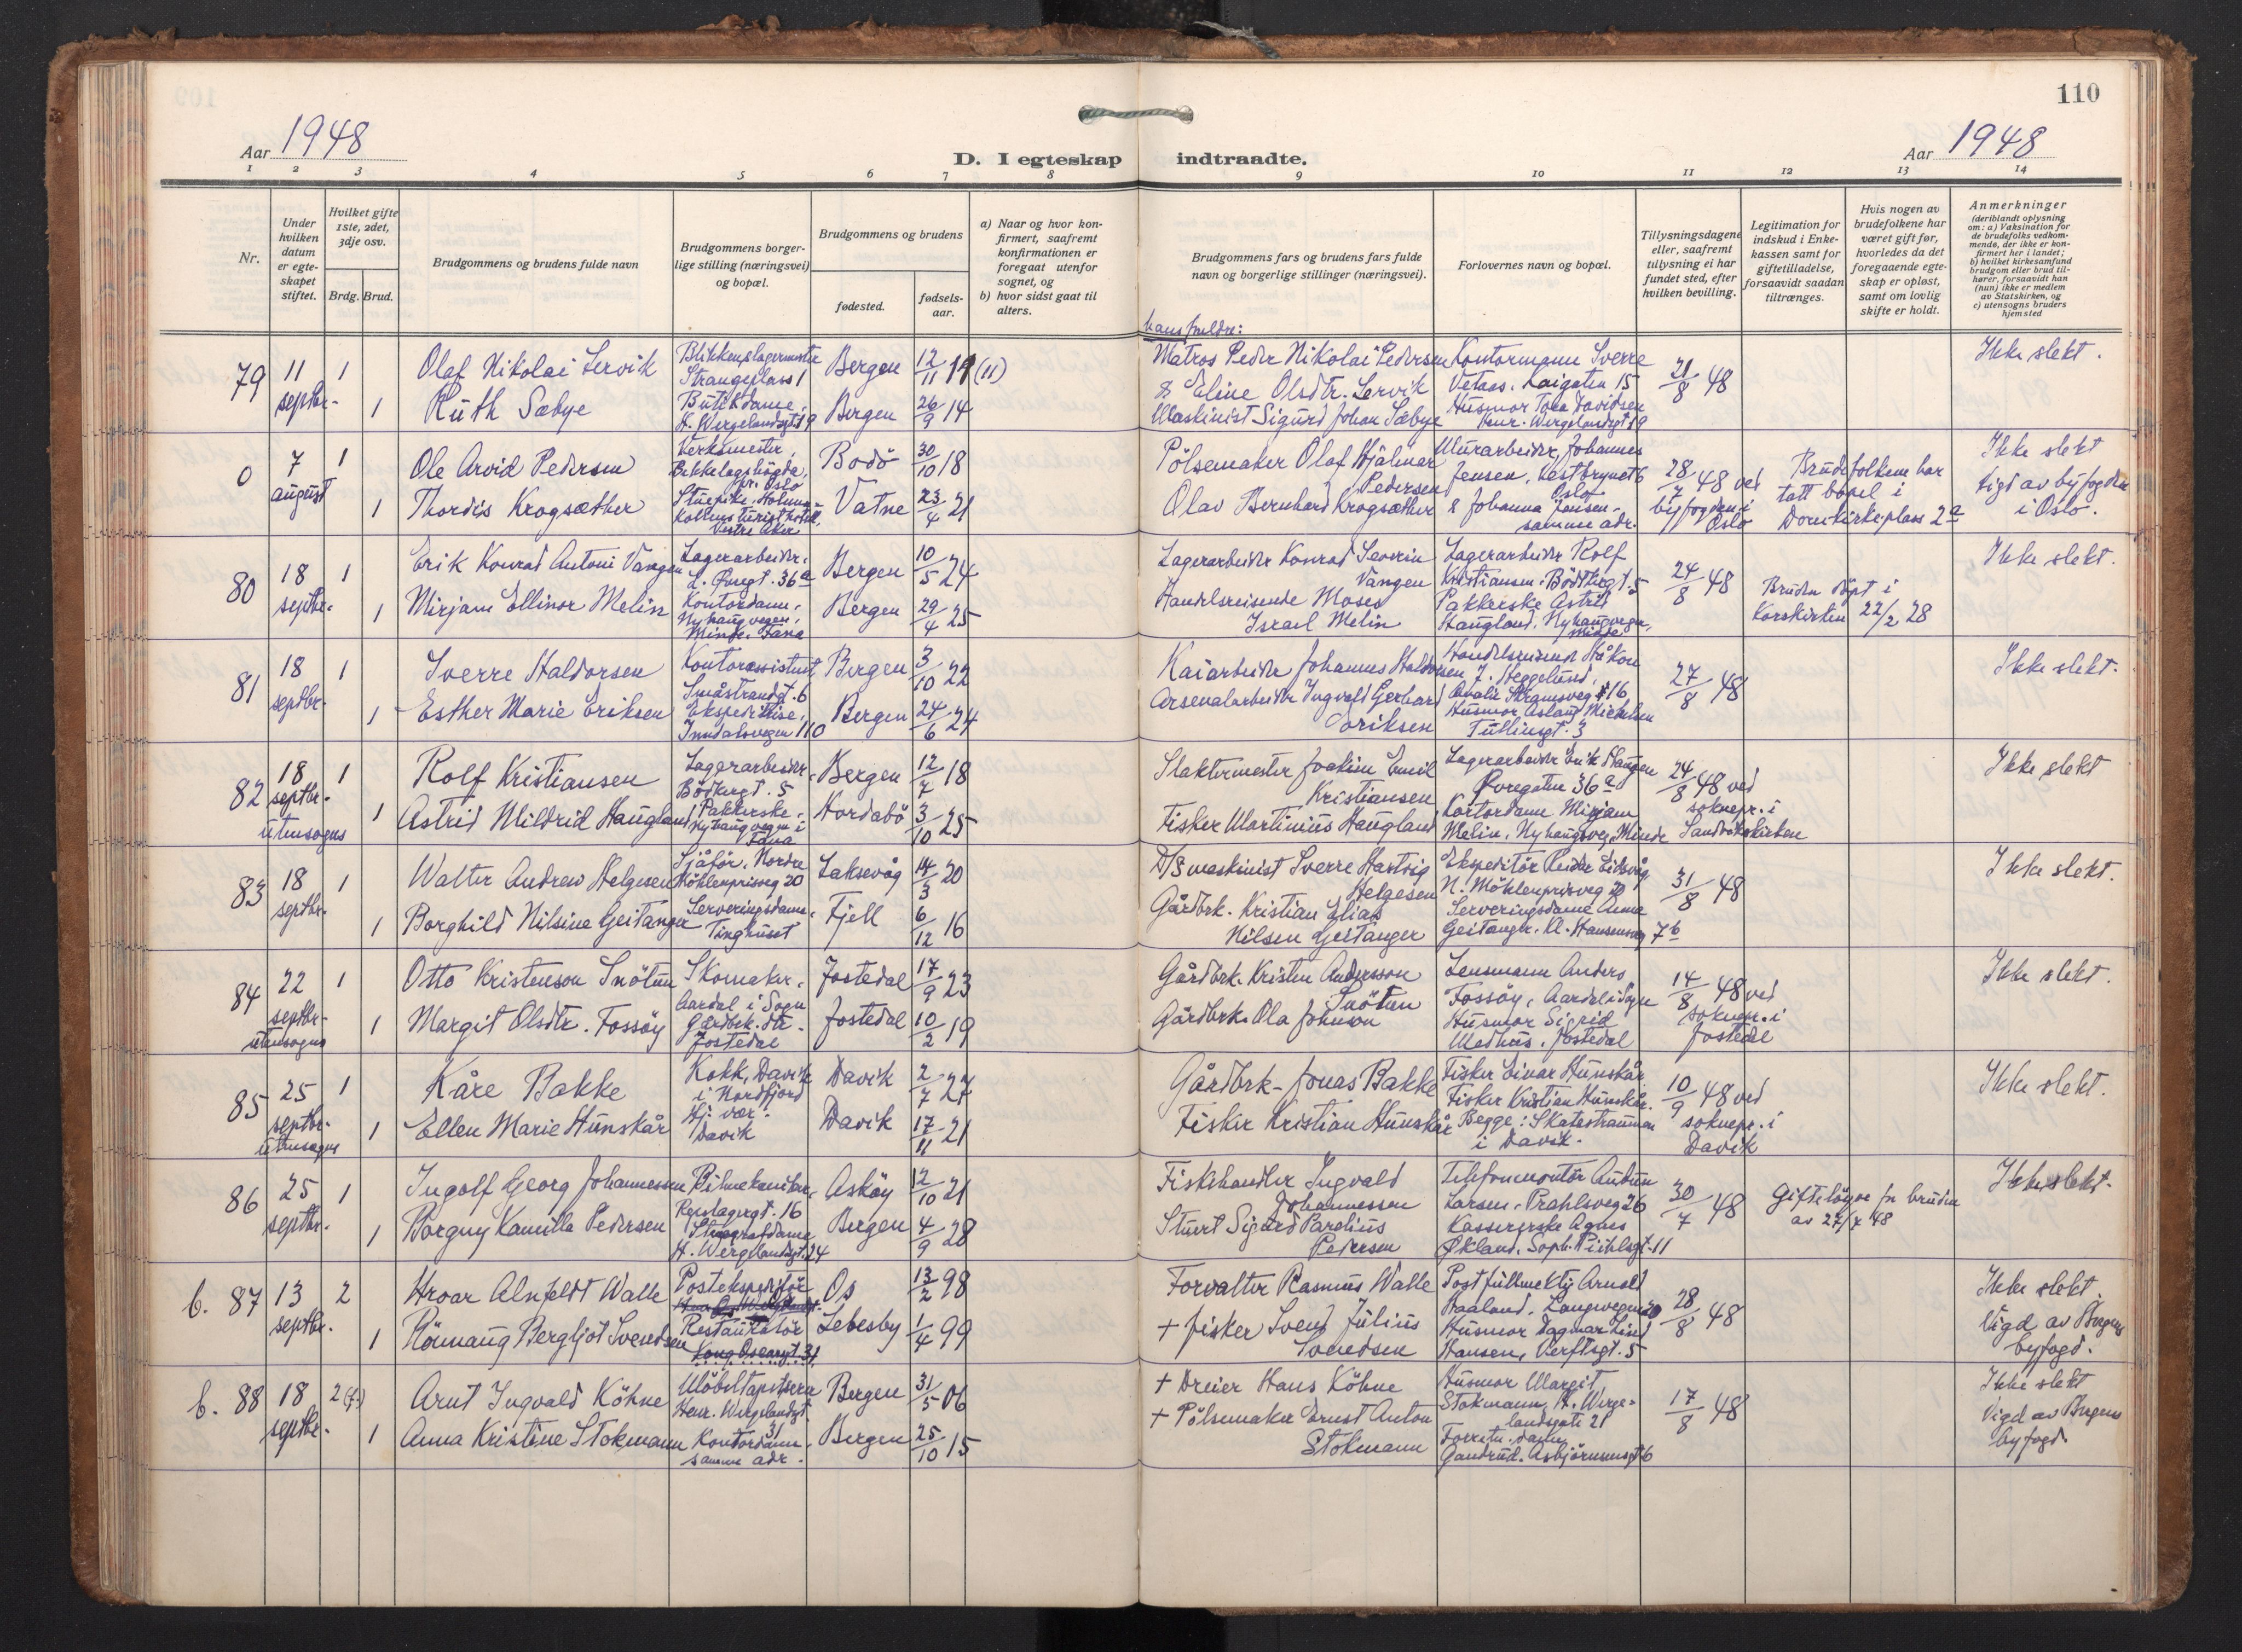 110
Aar 1948
D. I egteskap indtraadte.
Aar 1948
1 2 3 4 5 6 7 8 9 10 11 12 13 14
Nr.
Under hvilken datum er egteskapet stiftet.
Hvilket gifte 1ste, 2det, 3dje osv.
Brdg. Brud.
Brudgommens og brudens fulde navn
Brudgommens borgerlige stilling (næringsvei) og bopæl.
Brudgommens og brudens
fødested.
fødselsaar.
a) Naar og hvor konfirmert, saafremt konfirmationen er foregaat utenfor sognet, og
b) hvor sidst gaat til alters.
Brudgommens fars og brudens fars fulde navn og borgerlige stillinger (næringsvei).
Forlovernes navn og bopæl.
Tillysningsdagene eller, saafremt tillysning ei har fundet sted, efter hvilken bevilling.
Legitimation for indskud i Enkekassen samt for giftetilladelse, forsaavidt saadan tiltrænges.
Hvis nogen av brudefolkene har været gift før, hvorledes da det foregaaende egteskap er opløst, samt om lovlig skifte er holdt.
Anmerkninger
(deriblandt oplysning om: a) Vaksination for de brudefolks vedkommende, der ikke er konfirmert her i landet; b) hvilket kirkesamfund brudgom eller brud tilhører, forsaavidt han (hun) ikke er medlem av Statskirken, og c) utensogns bruders hjemsted
79 11 septbr. 1 Olaf Nikolai Lervik Blikkenslagermester Strangeplass 1 Bergen 12/11 19 (11)
hans foreldre: Matros Peder Nikolai Pedersen & Eline Olsdtr. Lervik
Kontormann Sverre Vetaas. Laigaten 15
21/8 48 Ikke slekt.
1 Ruth Sæbye Butikdame, H. Wergelandsgt. 19 Bergen 26/9 14
Maskinist Sigurd Johan Sæbye
Husmor Tora Davidsen Henr. Wergelandsgt 19
0 7 august 1 Ole Arvid Pedersen Verksmester, Bekkelagshögda, pr. Oslo Bodö 30/10 18
Pölsemaker Olaf Hjalmar Pedersen
Murarbeider, Johannes Jensen, Vestbrynet 6 Oslo
28/7 48 ved byfogden i Oslo
Brudefolkene har tatt bopel i Domkirkeplass 2a
Ikke slekt
Vigd av byfogden i Oslo.
1 Thordis Krogsæther Stuepike. Holmenkollens turisthotell, Vestre Aker Vatne 23/4 21
Olav Bernhard Krogsæther
& Johanna Jensen. samme adr.
80 18 septbr. 1 Erik Konrad Antoni Vangen Lagerarbeider, L. Øvregt. 36a Bergen 10/5 24
Lagerarbeider Konrad Severin Vangen
Lagerarbeider Rolf Kristiansen. Bödkergt. 5
24/8 48
Bruden döpt i Korskirken 22/2 28
Ikke slekt.
1 Mirjam Ellinor Melin Kontordame, Nyhaugvegen, Minde. Fana Bergen 29/4 25
Handelsreisende Moses Israel Melin
Pakkerske Astrid Haugland. Nyhaugvegen, Minde
81 18 septbr. 1 Sverre Haldorsen Kontorassistent Småstrandgt. 6 Bergen 3/10 22
Kaiarbeider Johannes Haldorsen
Handelsreisende Håkon J. Heggelund, Absalon
27/8 48 Ikke slekt.
1 Esther Marie Eriksen Ekspeditrise, Inndalsvegen 110 Bergen 24/6 24
Arsenalarbeider Ingvald Gerhard Eriksen
Husmor Aslaug Mickelsen Tullinsgt. 3
82 18 septbr. utensogns 1 Rolf Kristiansen Lagerarbeider, Bödkergt. 5 Bergen 12/7 18
Slaktermester Joakim Emil Kristiansen
Lagerarbeider Erik Vangen Øvregaten 36a
24/8 48 ved soknepr. i Sandvikskirken
Ikke slekt
1 Astrid Mildrid Haugland Pakkerske, Nyhaugvegen i Fana Nordabö 3/10 25
Fisker Martinius Haugland
Kontordame Mirjam Melin, Nyhaugsveg, Minde
83 18 septbr. 1 Walter Andrew Helgesen Sjåför, Nordre Möhlenprisveg 20 Laksevåg 14/3 20
D/S maskinist Sverre Hartvig Helgesen
Ekspeditör Peder Eidsvåg N. Möhlenprisveg 20
31/8 48 Ikke slekt.
1 Borghild Nilsine Geitanger Serveringsdame, Tinghuset Fjell 6/12 16
Gårdbrk. Kristian Elias Nilsen Geitanger
Serveringsdame Anna Geitanger, Kl. Hansensveg 7b
84 22 septbr. utensogns 1 Otto Kristenson Snötun Skomaker. Aardal i Sogn Jostedal 17/9 23
Gårdbrk. Kristen Andersson Snötun
Lensmann Anders Fossöy, Aardal i Sogn
14/8 48 ved soknepr. i Jostedal
Ikke slekt.
1 Margit Olsdtr. Fossöy Gårdbrk. dtr. Jostedal Jostedal 10/2 19
Gårdbrk. Ola Johnson
Husmor Sigrid Medhus. Jostedal
85 25 septbr. utensogns 1 Kåre Bakke Kokk, Davik i Nordfjord Davik 2/7 27
Gårdbrk. Jonas Bakke
Fisker Einar Hunskår
10/9 48 ved soknepr. i Davik
Ikke slekt.
1 Ellen Marie Hunskår Hj. vær. Davik Davik 17/11 21
Fisker Kristian Hunskår
Fisker Kristian Hunskår. Begge: Skatestraumen i Davik.
86 25 septbr. 1 Ingolf Georg Johannessen Bilmekaniker, Repslagergt. 16 Asköy 12/10 21
Fiskehandler Ingvald Johannessen
Telefonmontör Audun Larsen. Prahlsveg 26
30/7 48
Gifteløyve for bruden av 27/7 48
Ikke slekt.
1 Borgny Kamilla Pedersen H. Wergelandsgt. 24 Bergen 4/9 28
Stuert Sigurd Parelius Pedersen
Kassererske Agnes Økland, Soph. Pihlsgt. 11
b. 87 13 septbr. 2 Hroar Alnfeldt Walle Postekspeditör Os 13/2 98
Forvalter Rasmus Walle
Postfullmektig Arnold Haaland. Langevegen 20
28/8 48
Ikke slekt.
Vigd av Bergens byfogd.
1 Römaug Bergljot Svendsen Restauratör Kong Oscarsgt. 31 Lebesby 1/4 99
+ fisker Svend Julius Svendsen
Husmor Dagmar Lind Hansen, Verftsgt. 5
b. 88 18 septbr. 2 (f.) Arnt Ingvald Köhne Möbeltapetserer Henr. Wergelandsgt. 31 Bergen 31/5 06
+ Dreier Hans Köhne
Husmor Margit Stokmann, H. Wergelandsgate 21
17/8 48
Ikke slekt
Vigd av Bergens byfogd.
1 Anna Kristine Stokmann Kontordame, samme adr. Bergen 25/10 15
+ Pölsemaker Ernst Anton Stokmann
Forretn. dame Gandrud. Asbjörnsensgt 6